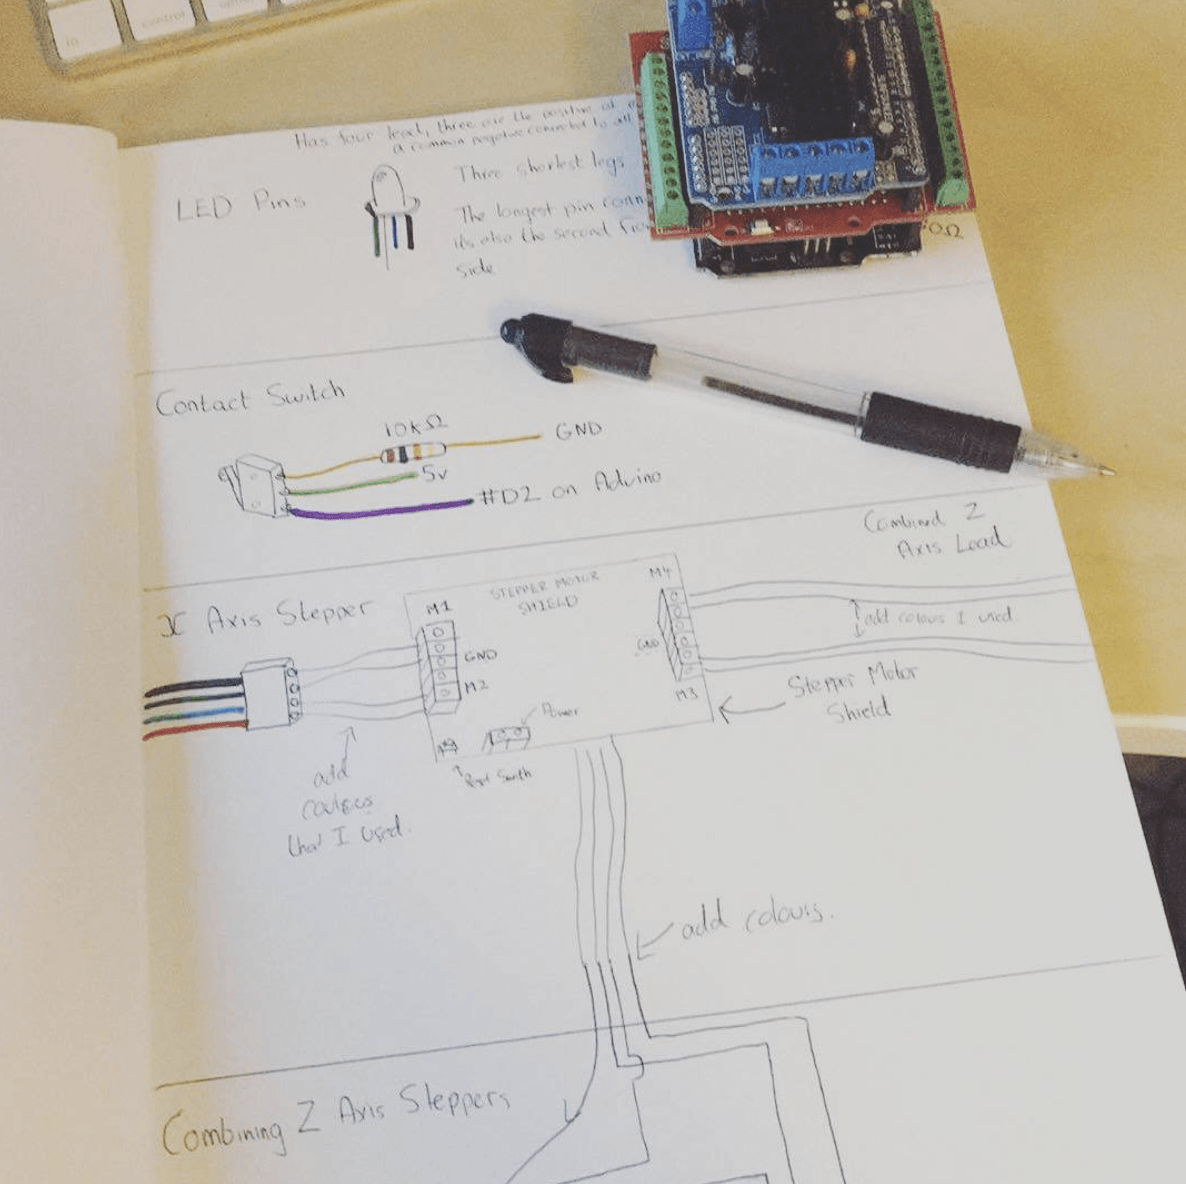 control
Has four lead, three are the positive of
a common negative connected to all
LED Pins
Three shortest legs
The longest pin conn
its also the second fro
side
0Ω
Contact Switch
10kΩ
GND
5v
#D2 on Arduino
Combined Z
Axis Load
X Axis Stepper
M1
GND
M2
STEPPER MOTOR
SHIELD
M4
GND
M3
add colours I used
Stepper Motor
Shield
Power
add
colours
that I used.
add colours.
Combining Z Axis Steppers